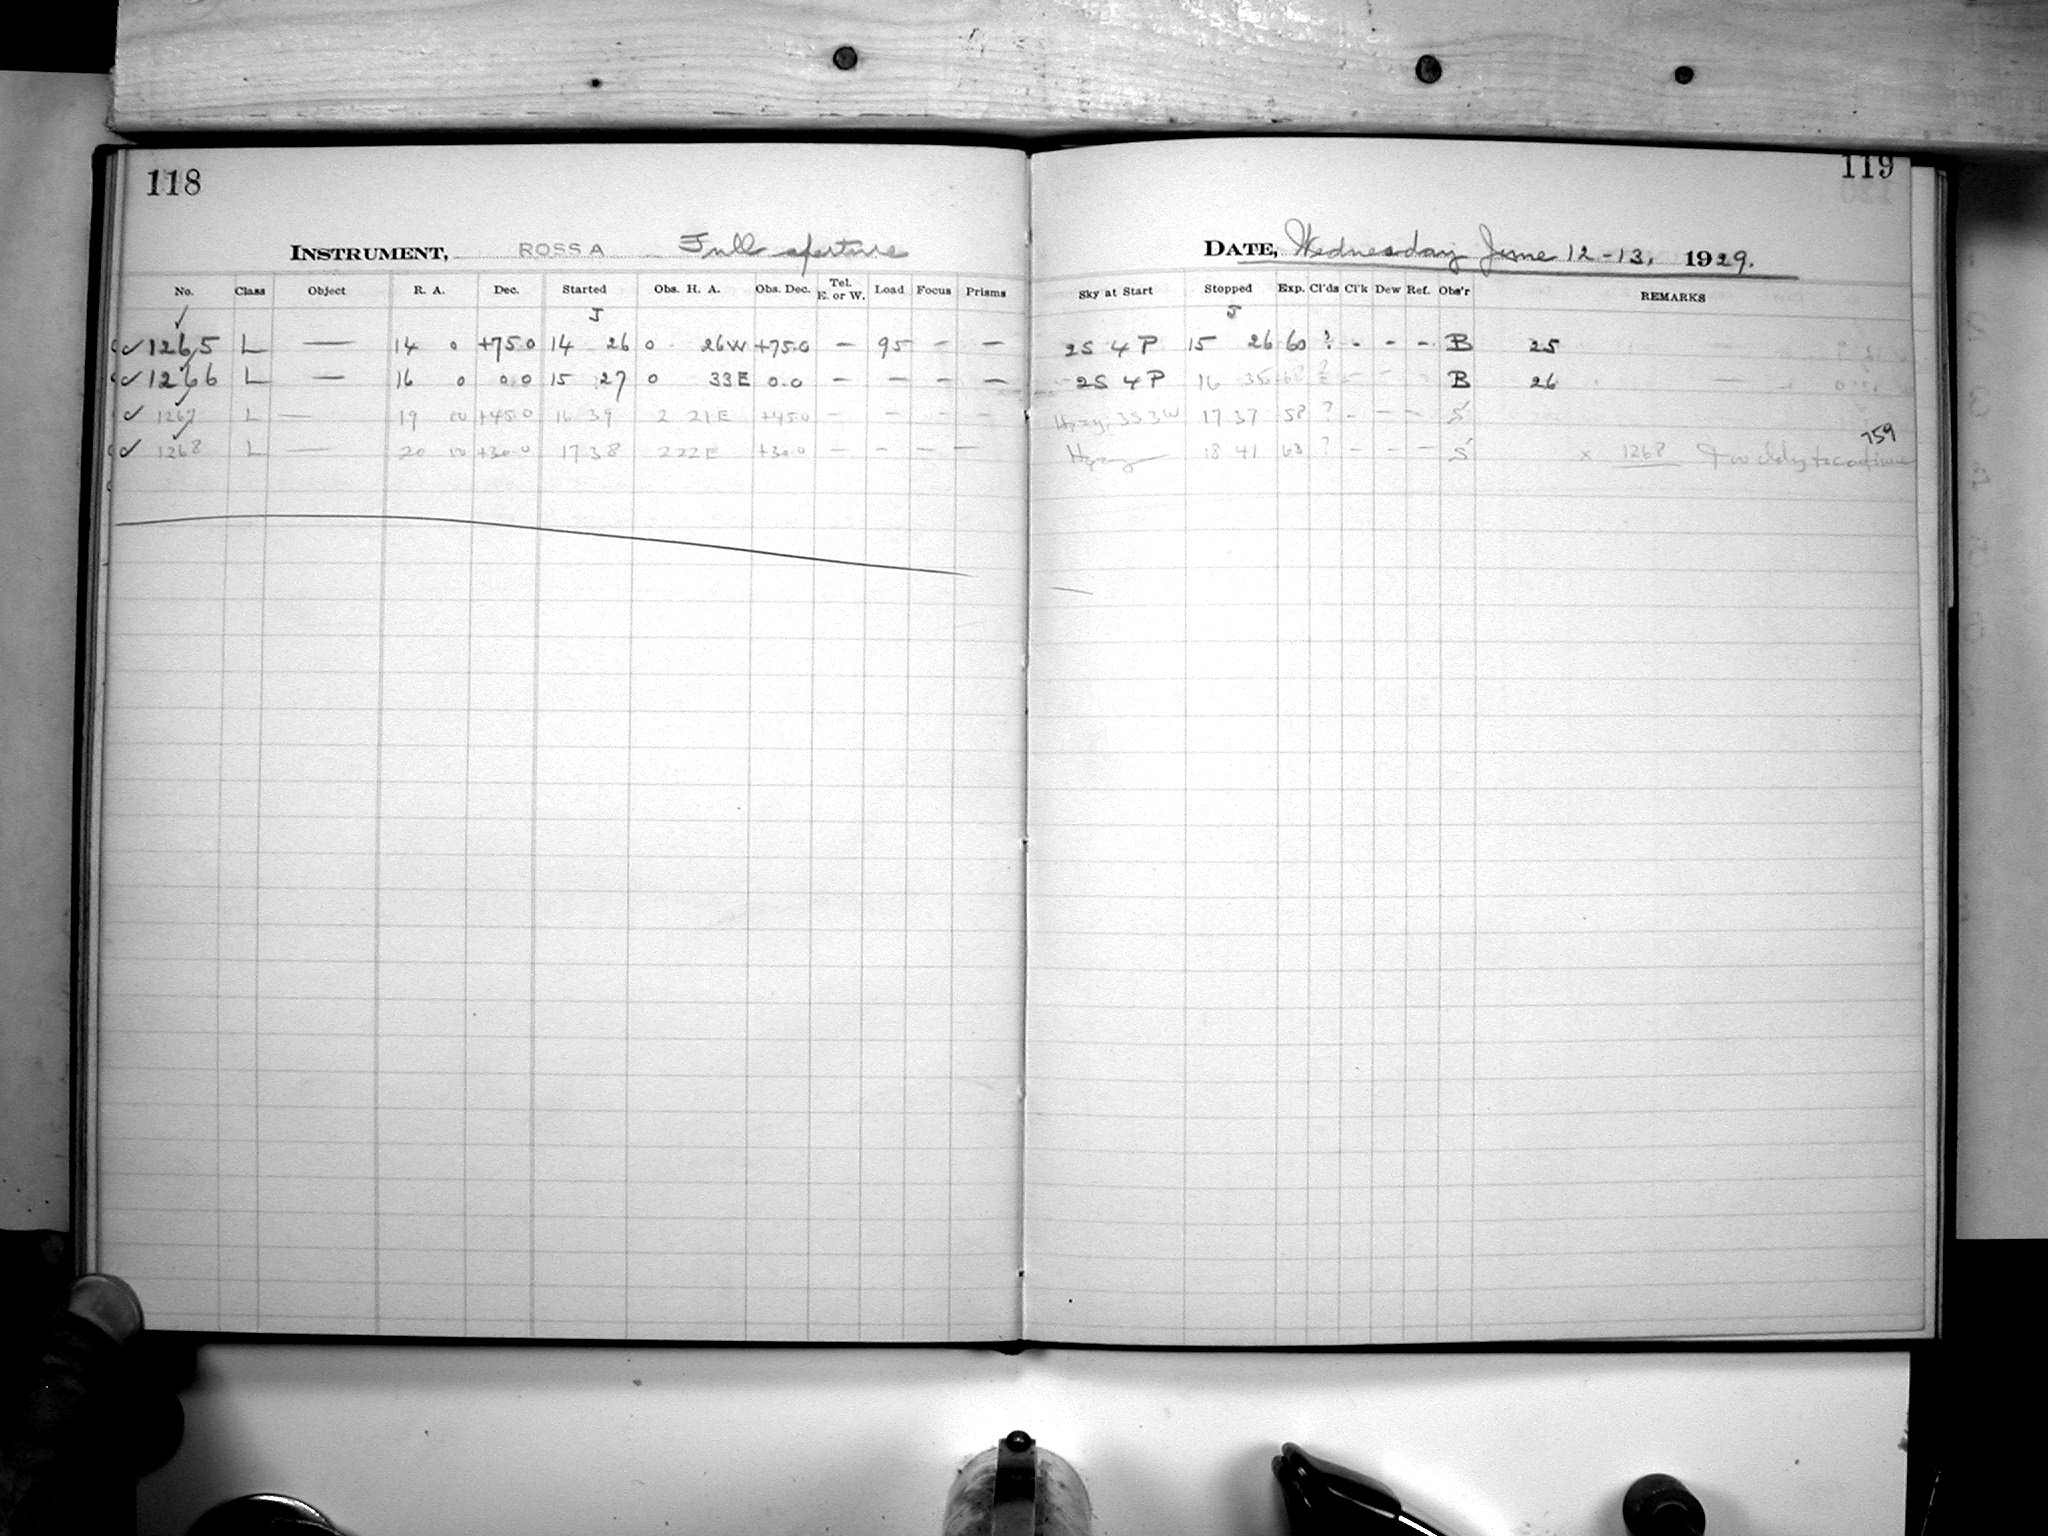 118
INSTRUMENT, ROSS A Full aperture
No. Class Object R. A. Dec. Started Obs. H. A. Obs. Dec. Tel. E. or W. Load Focus Prisms
J
✓ 1265 L — 14 0 +75.0 14 26 0 26W +75.0 — 95 — —
✓ 1266 L — 16 0 0.0 15 27 0 33E 0.0 — — — —
✓ 1267 L — 19 00 +45.0 16 39 2 21E +45.0 — — — —
✓ 1268 L — 20 00 +30.0 17 38 2 22E +30.0 — — — —
119
DATE, Wednesday June 12-13, 1929.
Sky at Start Stopped Exp. Cl'ds Cl'k Dew Ref. Obs'r REMARKS
J
2S 4 P 15 26 60 ? - - - B 25
2S 4 P 16 35 68 B 26
Hazy, 3S3W 17 37 58 ? - - - S
Hazy 18 41 63 ? - - - S x 1268 Too cldy to continue
759